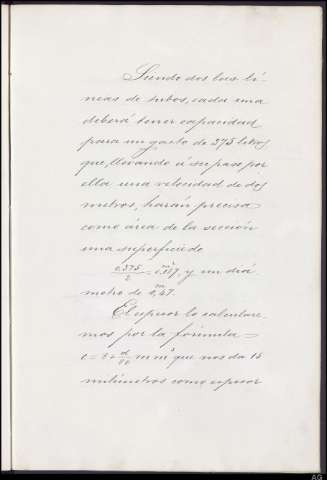 Siendo dos las lí-
neas de tubos, cada una
deberá tener capacidad
para un gasto de 375 litros
que, llevando á su paso por
ella una velocidad de dos
metros, harán precisa
como área de la sección
una superficie de
0.375/2 = 0.187, y un diá
metro de 0,47.
El espesor lo calculare
mos por la fórmula =
mm que nos da 15
milímetros como espesor
AG